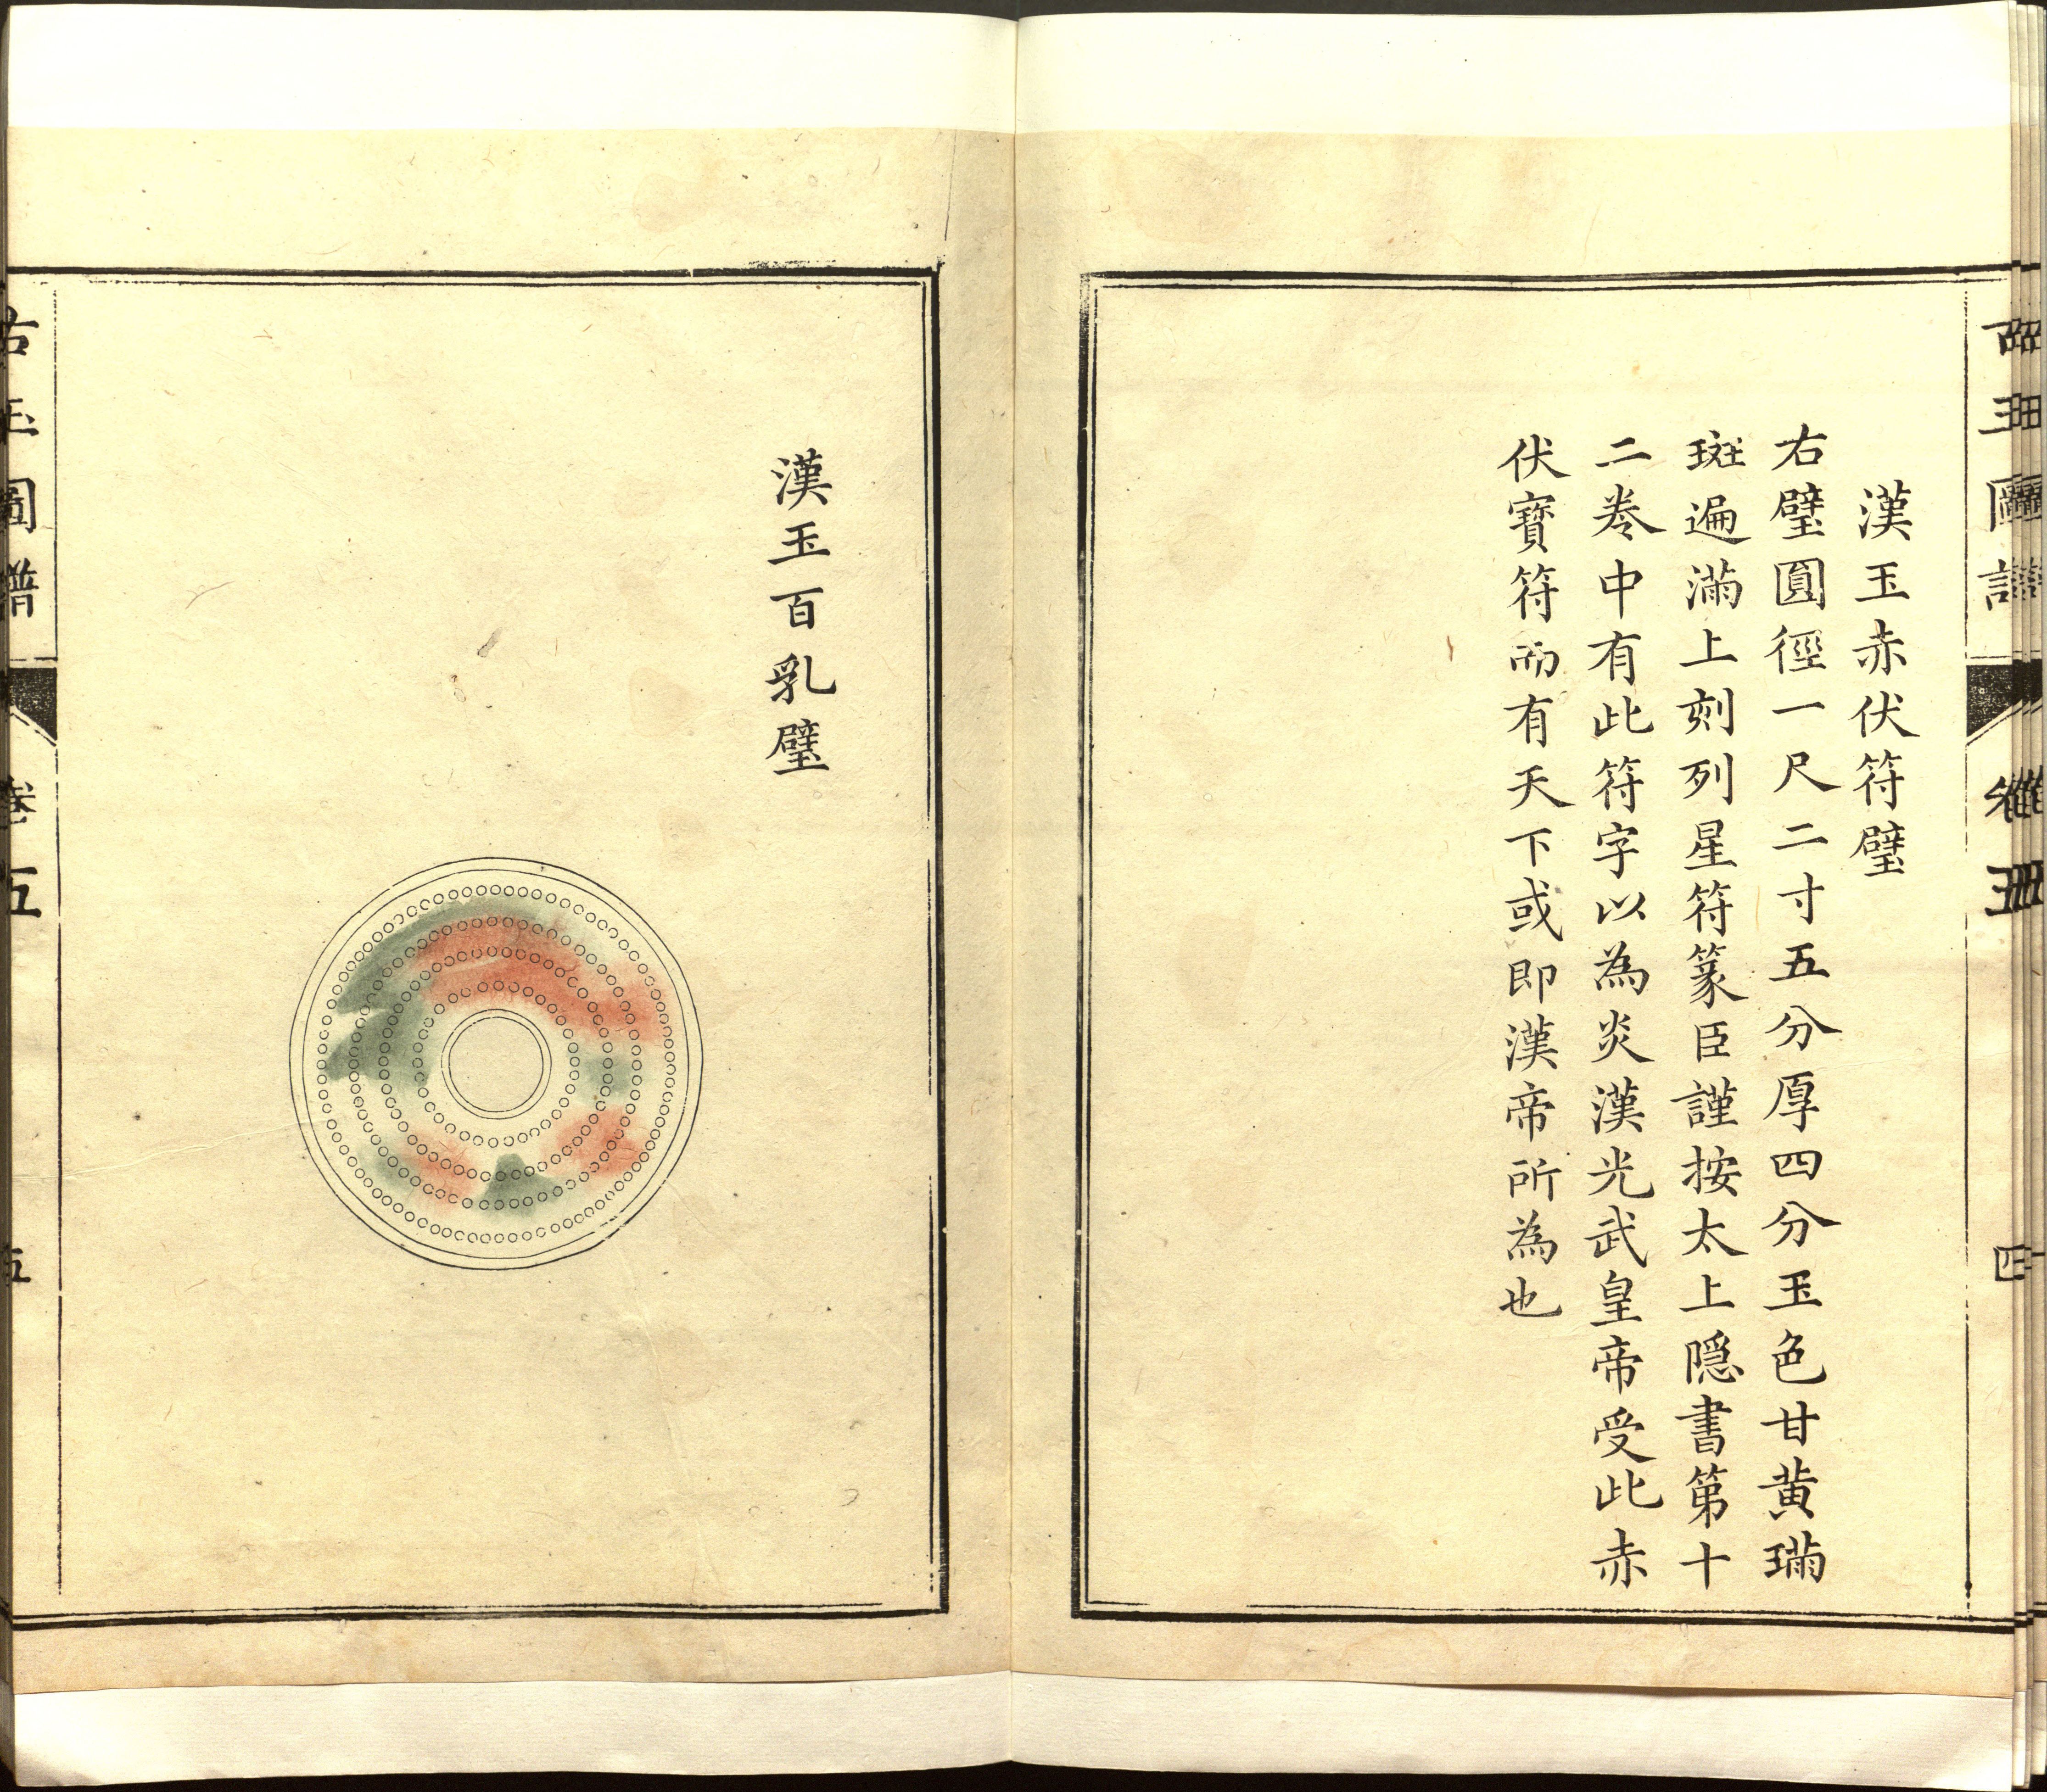 漢玉赤伏符璧
右璧圓徑一尺二寸五分厚四分玉色甘黄璊
斑遍滿上刻列星符篆臣謹按太上隠書第十
二卷中有此符字以為炎漢光武皇帝受此赤
伏寶符而有天下或即漢帝所為也
四
漢玉百乳璧
古玉圖譜
卷五
五